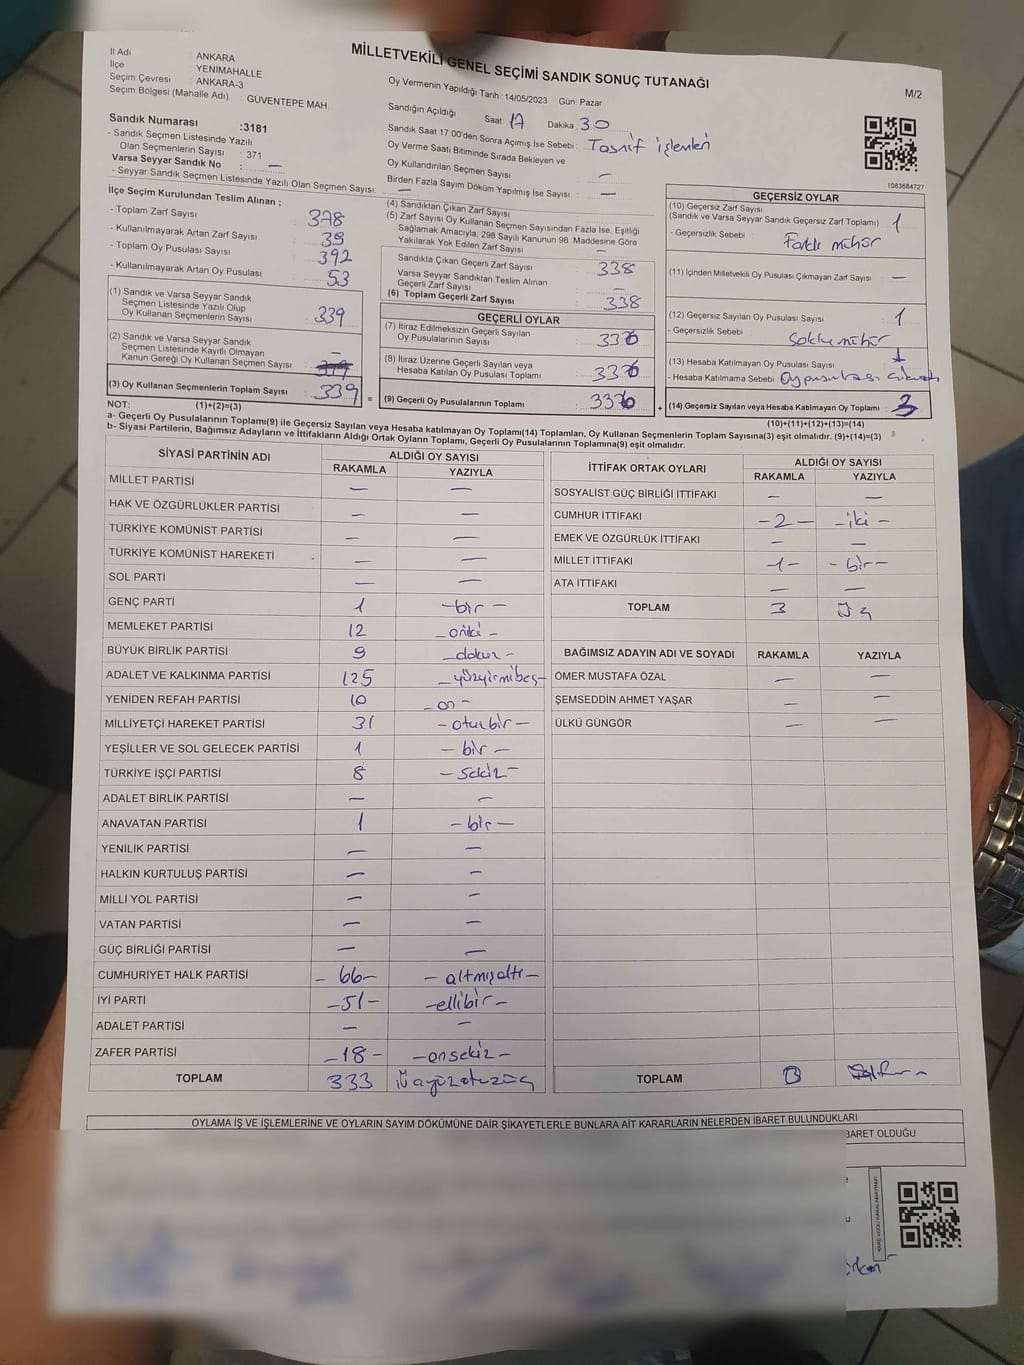 MİLLETVEKİLİ GENEL SEÇİMİ SANDIK SONUÇ TUTANAĞI
M/2
İl Adı : ANKARA
İlçe : YENİMAHALLE
Seçim Çevresi : ANKARA-3
Seçim Bölgesi (Mahalle Adı) : GÜVENTEPE MAH.
Oy Vermenin Yapıldığı Tarih : 14/05/2023 Gün: Pazar
Sandığın Açıldığı Saat: 17 Dakika : 30
Sandık Saat 17:00'den Sonra Açımış İse Sebebi : Tasnif işlemleri
Oy Verme Saati Bitiminde Sırada Bekleyen ve
Oy Kullandırılan Seçmen Sayısı : —
Birden Fazla Sayım Döküm Yapılmış İse Sayısı : —
Sandık Numarası :3181
- Sandık Seçmen Listesinde Yazılı
Olan Seçmenlerin Sayısı : 371
Varsa Seyyar Sandık No : —
- Seyyar Sandık Seçmen Listesinde Yazılı Olan Seçmen Sayısı: —
1083684727
İlçe Seçim Kurulundan Teslim Alınan ;
- Toplam Zarf Sayısı : 378
- Kullanılmayarak Artan Zarf Sayısı : 39
- Toplam Oy Pusulası Sayısı : 392
- Kullanılmayarak Artan Oy Pusulası : 53
(1) Sandık ve Varsa Seyyar Sandık
Seçmen Listesinde Yazılı Olup
Oy Kullanan Seçmenlerin Sayısı : 339
(2) Sandık ve Varsa Seyyar Sandık
Seçmen Listesinde Kayıtlı Olmayan
Kanun Gereği Oy Kullanan Seçmen Sayısı : —
(3) Oy Kullanan Seçmenlerin Toplam Sayısı : 339
(4) Sandıktan Çıkan Zarf Sayısı
(5) Zarf Sayısı Oy Kullanan Seçmen Sayısından Fazla İse, Eşitliği
Sağlamak Amacıyla; 298 Sayılı Kanunun 98. Maddesine Göre
Yakılarak Yok Edilen Zarf Sayısı : —
Sandıkta Çıkan Geçerli Zarf Sayısı : 338
Varsa Seyyar Sandıktan Teslim Alınan
Geçerli Zarf Sayısı : —
(6) Toplam Geçerli Zarf Sayısı : 338
GEÇERLİ OYLAR
(7) İtiraz Edilmeksizin Geçerli Sayılan
Oy Pusulalarının Sayısı : 336
(8) İtiraz Üzerine Geçerli Sayılan veya
Hesaba Katılan Oy Pusulası Toplamı : 336
= (9) Geçerli Oy Pusulalarının Toplamı : 336 +
GEÇERSİZ OYLAR
(10) Geçersiz Zarf Sayısı
(Sandık ve Varsa Seyyar Sandık Geçersiz Zarf Toplamı) : 1
- Geçersizlik Sebebi : Farklı mühür
(11) İçinden Milletvekili Oy Pusulası Çıkmayan Zarf Sayısı : —
(12) Geçersiz Sayılan Oy Pusulası Sayısı : 1
- Geçersizlik Sebebi :
(13) Hesaba Katılmayan Oy Pusulası Sayısı : 1
- Hesaba Katılmama Sebebi : Oy pusulası
(14) Geçersiz Sayılan veya Hesaba Katılmayan Oy Toplamı : 3
NOT: (1)+(2)=(3) (10)+(11)+(12)+(13)=(14)
a- Geçerli Oy Pusulalarının Toplamı(9) ile Geçersiz Sayılan veya Hesaba katılmayan Oy Toplamı(14) Toplamları, Oy Kullanan Seçmenlerin Toplam Sayısına(3) eşit olmalıdır. (9)+(14)=(3)
b- Siyasi Partilerin, Bağımsız Adayların ve İttifakların Aldığı Ortak Oyların Toplamı, Geçerli Oy Pusulalarının Toplamına(9) eşit olmalıdır.
SİYASİ PARTİNİN ADI ALDIĞI OY SAYISI
RAKAMLA YAZIYLA
MİLLET PARTİSİ — —
HAK VE ÖZGÜRLÜKLER PARTİSİ — —
TÜRKİYE KOMÜNİST PARTİSİ — —
TÜRKİYE KOMÜNİST HAREKETİ — —
SOL PARTİ — —
GENÇ PARTİ 1 –bir –
MEMLEKET PARTİSİ 12 – oniki –
BÜYÜK BİRLİK PARTİSİ 9 – dokuz –
ADALET VE KALKINMA PARTİSİ 125 – yüzyirmibeş–
YENİDEN REFAH PARTİSİ 10 – on –
MİLLİYETÇİ HAREKET PARTİSİ 31 – otuzbir –
YEŞİLLER VE SOL GELECEK PARTİSİ 1 – bir –
TÜRKİYE İŞÇİ PARTİSİ 8 – sekiz –
ADALET BİRLİK PARTİSİ — —
ANAVATAN PARTİSİ 1 – bir –
YENİLİK PARTİSİ — —
HALKIN KURTULUŞ PARTİSİ — —
MİLLİ YOL PARTİSİ — —
VATAN PARTİSİ — —
GÜÇ BİRLİĞİ PARTİSİ — —
CUMHURİYET HALK PARTİSİ – 66 – – altmışaltı –
İYİ PARTİ – 51 – – ellibir –
ADALET PARTİSİ — —
ZAFER PARTİSİ – 18 – – onsekiz –
TOPLAM 333 Üçyüzotuzüç
İTTİFAK ORTAK OYLARI ALDIĞI OY SAYISI
RAKAMLA YAZIYLA
SOSYALİST GÜÇ BİRLİĞİ İTTİFAKI — —
CUMHUR İTTİFAKI – 2 – – iki –
EMEK VE ÖZGÜRLÜK İTTİFAKI — —
MİLLET İTTİFAKI – 1 – – bir –
ATA İTTİFAKI — —
TOPLAM 3 Üç
BAĞIMSIZ ADAYIN ADI VE SOYADI RAKAMLA YAZIYLA
ÖMER MUSTAFA ÖZAL — —
ŞEMSEDDİN AHMET YAŞAR — —
ÜLKÜ GÜNGÖR — —
TOPLAM
OYLAMA İŞ VE İŞLEMLERİNE VE OYLARIN SAYIM DÖKÜMÜNE DAİR ŞİKAYETLERLE BUNLARA AİT KARARLARIN NELERDEN İBARET BULUNDUKLARI
BARET OLDUĞU